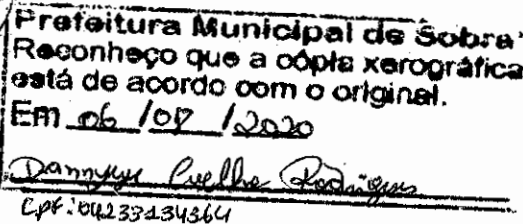 Prefeitura Municipal de Sobral
Reconheço que a cópia xerográfica
está de acordo com o original.
Em 06 /07 /2020
Coelho Rodrigues
Cpf: 04233434364